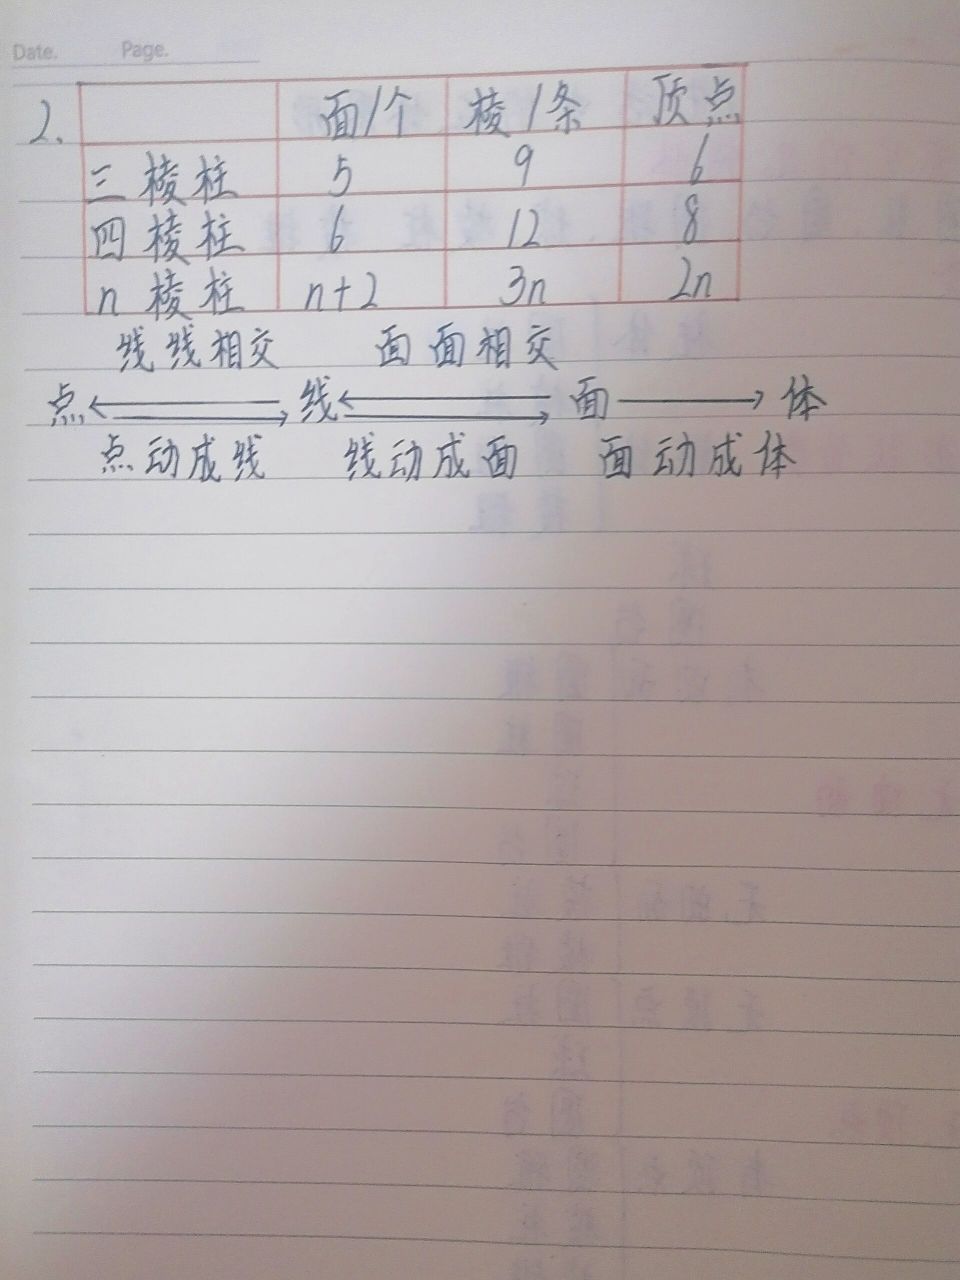 Date. Page.
2. 面/个 棱/条 顶点
三棱柱 5 9 6
四棱柱 6 12 8
n棱柱 n+2 3n 2n
线线相交 面面相交
点 线 面 体
点动成线 线动成面 面动成体